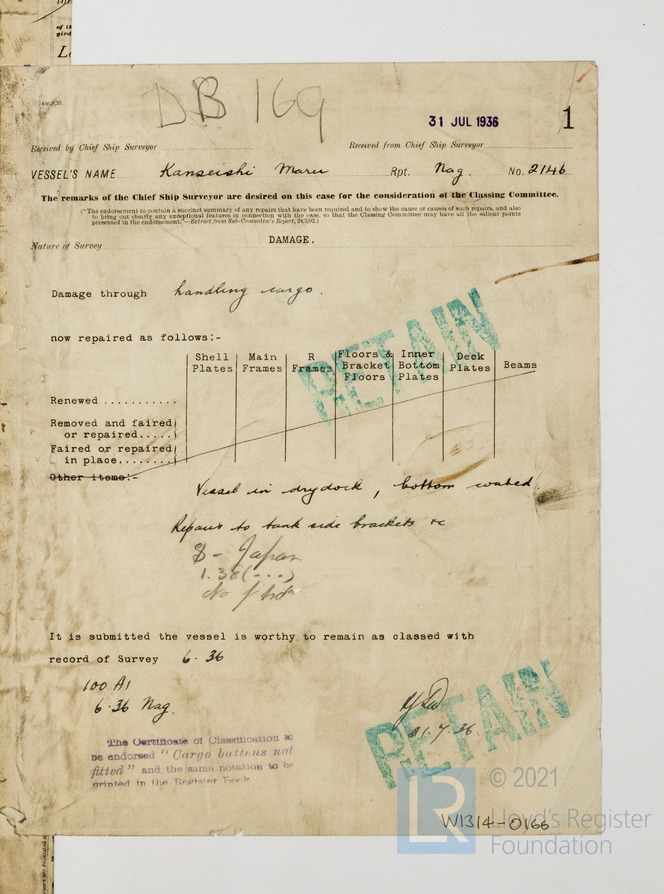 DB 169
4m,9,35.
31 JUL 1936
1
Received by Chief Ship Surveyor
Received from Chief Ship Surveyor
VESSEL'S NAME Kanseishi Maru Rpt. Nag. No. 2146
The remarks of the Chief Ship Surveyor are desired on this case for the consideration of the Classing Committee.
("The endorsement to contain a succinct summary of any repairs that have been required and to show the cause or causes of such repairs, and also
to bring out clearly any exceptional features in connection with the case, so that the Classing Committee may have all the salient points
presented in the endorsement."—Extract from Sub-Committee's Report, 24/5/92.)
Nature of Survey DAMAGE.
Damage through handling cargo.
now repaired as follows:-
RETAIN
Shell Plates
Main Frames
R Frames
Floors & Bracket Floors
Inner Bottom Plates
Deck Plates
Beams
Renewed ...........
Removed and faired
or repaired.....
Faired or repaired
in place........
Other items:-
Vessel in drydock, bottom coated.
Repairs to tank side brackets &c
Japan
It is submitted the vessel is worthy to remain as classed with
record of Survey 6.36
100 A1
6.36 Nag.
31.7.36.
RETAIN
The Certificate of Classification to
be endorsed "Cargo battens not
fitted" and the same notation to be
printed in the Register Book
W1314-0166
LR
© 2021
Lloyd's Register
Foundation